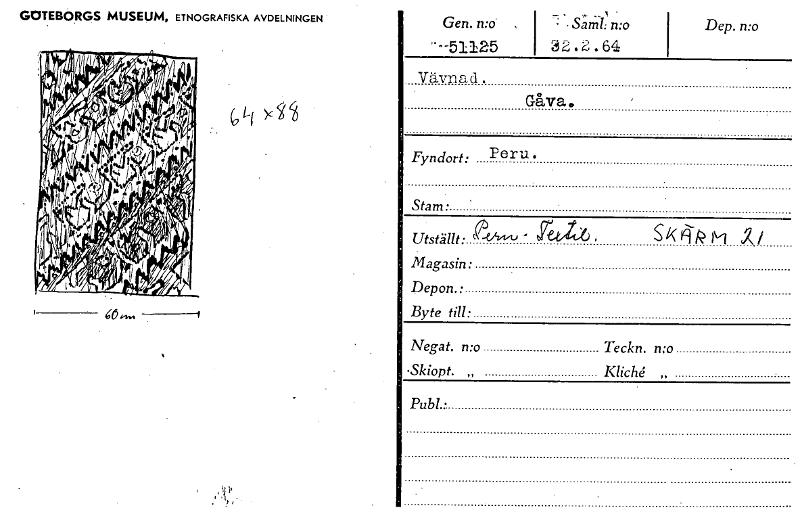 GÖTEBORGS MUSEUM, ETNOGRAFISKA AVDELNINGEN
64 x 88
60 cm
Gen. n:o Saml. n:o Dep. n:o
51125 32.2.64
Vävnad.
Gåva.
Fyndort: Peru.
Stam:
Utställt: Peru - Textil. SKÄRM 21
Magasin:
Depon.:
Byte till:
Negat. n:o Teckn. n:o
Skiopt. „ Kliché „
Publ.: